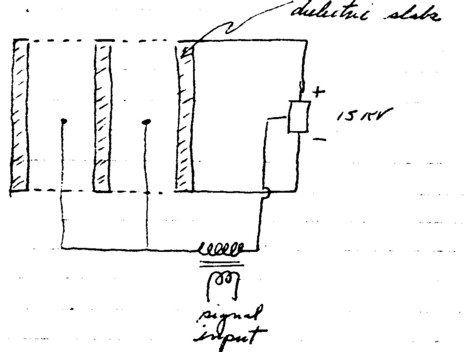 dielectric slabs
+
15 KV
-
signal
input